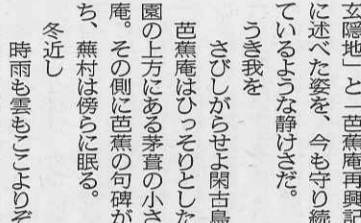 玄隠地」と「芭蕉庵再興記
に述べた姿を、今も守り続
ているような静けさだ。
うき我を
さびしがらせよ閑古鳥
芭蕉庵はひっそりとした
園の上方にある茅葺の小さ
庵。その側に芭蕉の句碑が
ち、蕪村は傍らに眠る。
冬近し
時雨も雲もここよりぞ